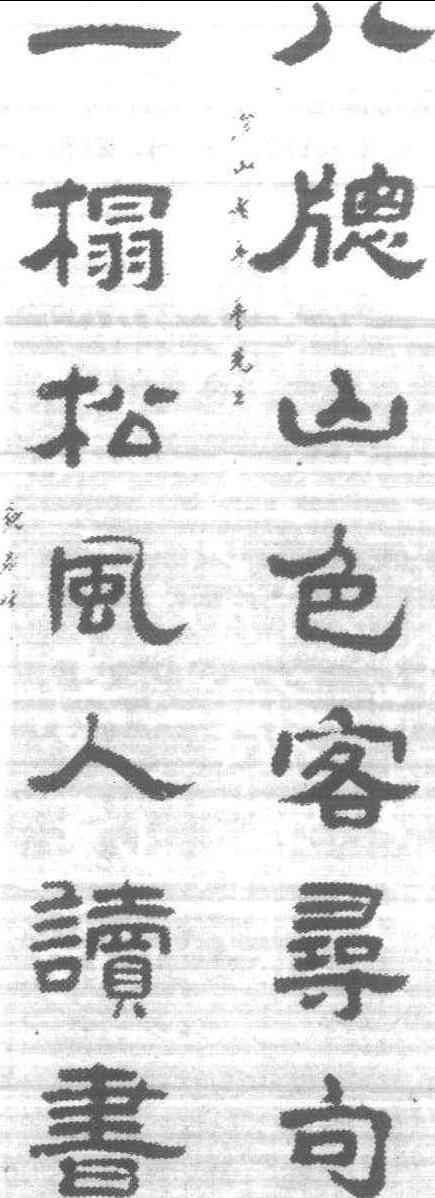 八牎山色客尋句
一榻松風人讀書